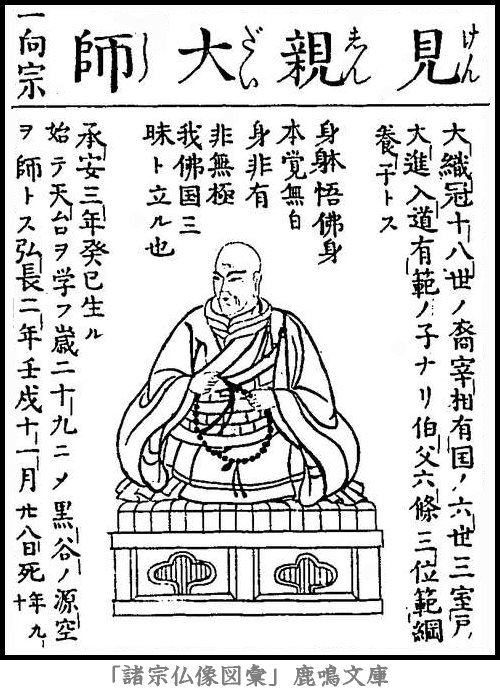 見親大師
けん しん だい し
一向宗
大織冠十八世ノ裔宰相有国ノ六世三室戸
大進入道有範ノ子ナリ伯父六條三位範綱
養子トス
身躰悟佛身
本覚無自
身非有
非無極
我佛国三
昧ト立ル也
承安三年癸巳生ル
始テ天台ヲ学フ歳二十九ニメ黒谷ノ源空
ヲ師トス弘長二年壬戌十一月廿八日死年九十
「諸宗仏像図彙」鹿鳴文庫